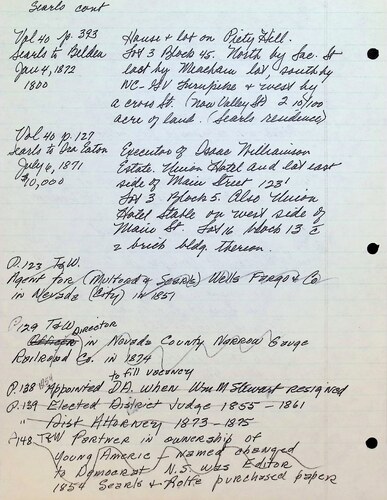 Searls cont
Vol 40 p. 393 House & lot on Piety Hill.
Searls to Belden Lot 3 Block 45. North by Sac. St
Jan 4, 1872 east by Meacham lot, south by
1800 NC-GV Turnpike & west by
a cross St. (Now Valley St) 2 10/100
acre of land. (Searls residence)
Vol 40 p. 127
Searls to Ira Eaton Executor of Isaac Williamson
July 6, 1871 Estate. Union Hotel and lot east
$10,000 side of Main Street 123'
Lot 3 Block 5. Also Union
Hotel Stable on west side of
Main St. Lot 16 block 13 c̄
2 brick bldg. thereon.
P. 123 T&W.
Agent for (Mulford & Searls) Wells Fargo & Co
in Nevada (City) in 1851
P129 T&W Director
in Nevada County Narrow Gauge
Railroad Co. in 1874
to fill vacancy
P. 138 Appointed D.A. when Wm M Stewart resigned
P. 139 Elected District Judge 1855 - 1861
" Dist Attorney 1873 - 1875
P148 T&W Partner in ownership of
Young America - Named changed
to Democrat N.S. was Editor
1854 Searls & Rolfe purchased paper